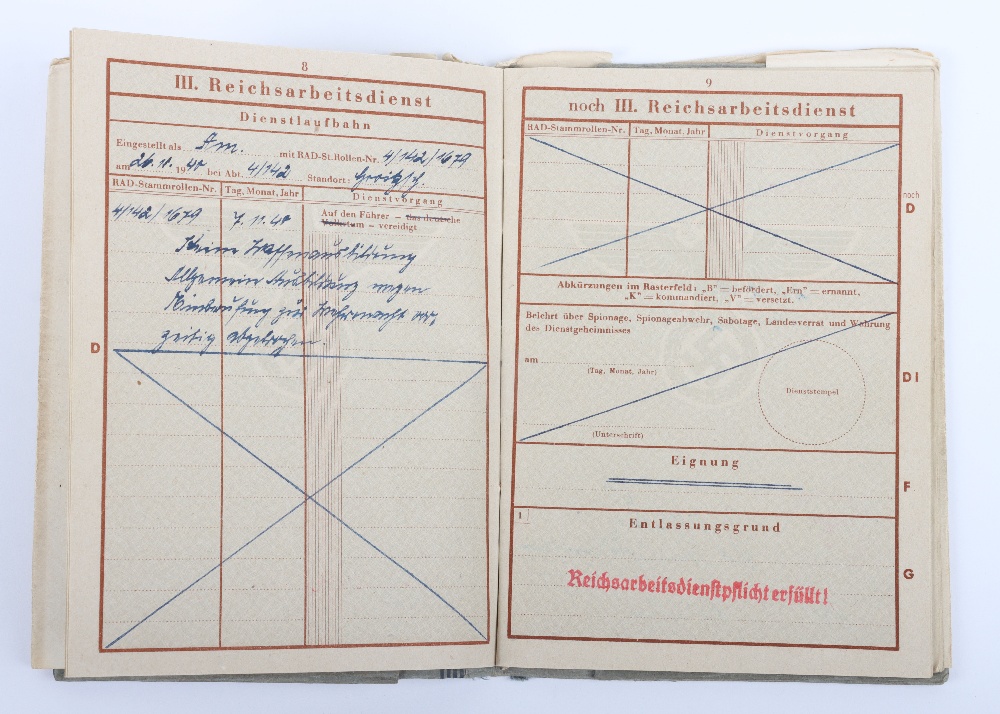 8
III. Reichsarbeitsdienst
Dienstlaufbahn
Eingestellt als Am. mit RAD-St.Rollen-Nr. 4/142/1679
am 26.10. 1940 bei Abt. 4/142 Standort: Groitzsch.
RAD-Stammrollen-Nr. Tag, Monat, Jahr Dienstvorgang
4/142/1679 7.11.40 Auf den Führer – das deutsche
Volkstum – vereidigt
Keine Waffenausbildung
Allgemeine Ausbildung wegen
Einberufung zur Wehrmacht vor,
zeitig abgebrochen.
D
9
noch III. Reichsarbeitsdienst
RAD-Stammrollen-Nr. Tag, Monat, Jahr Dienstvorgang
noch
D
Abkürzungen im Rasterfeld: „B" = befördert, „Ern" = ernannt,
„K" = kommandiert, „V" = versetzt.
Belehrt über Spionage, Spionageabwehr, Sabotage, Landesverrat und Wahrung
des Dienstgeheimnisses
am
(Tag, Monat, Jahr)
DI
Dienststempel
(Unterschrift)
Eignung
F
1
Entlassungsgrund
G
Reichsarbeitsdienstpflicht erfüllt!